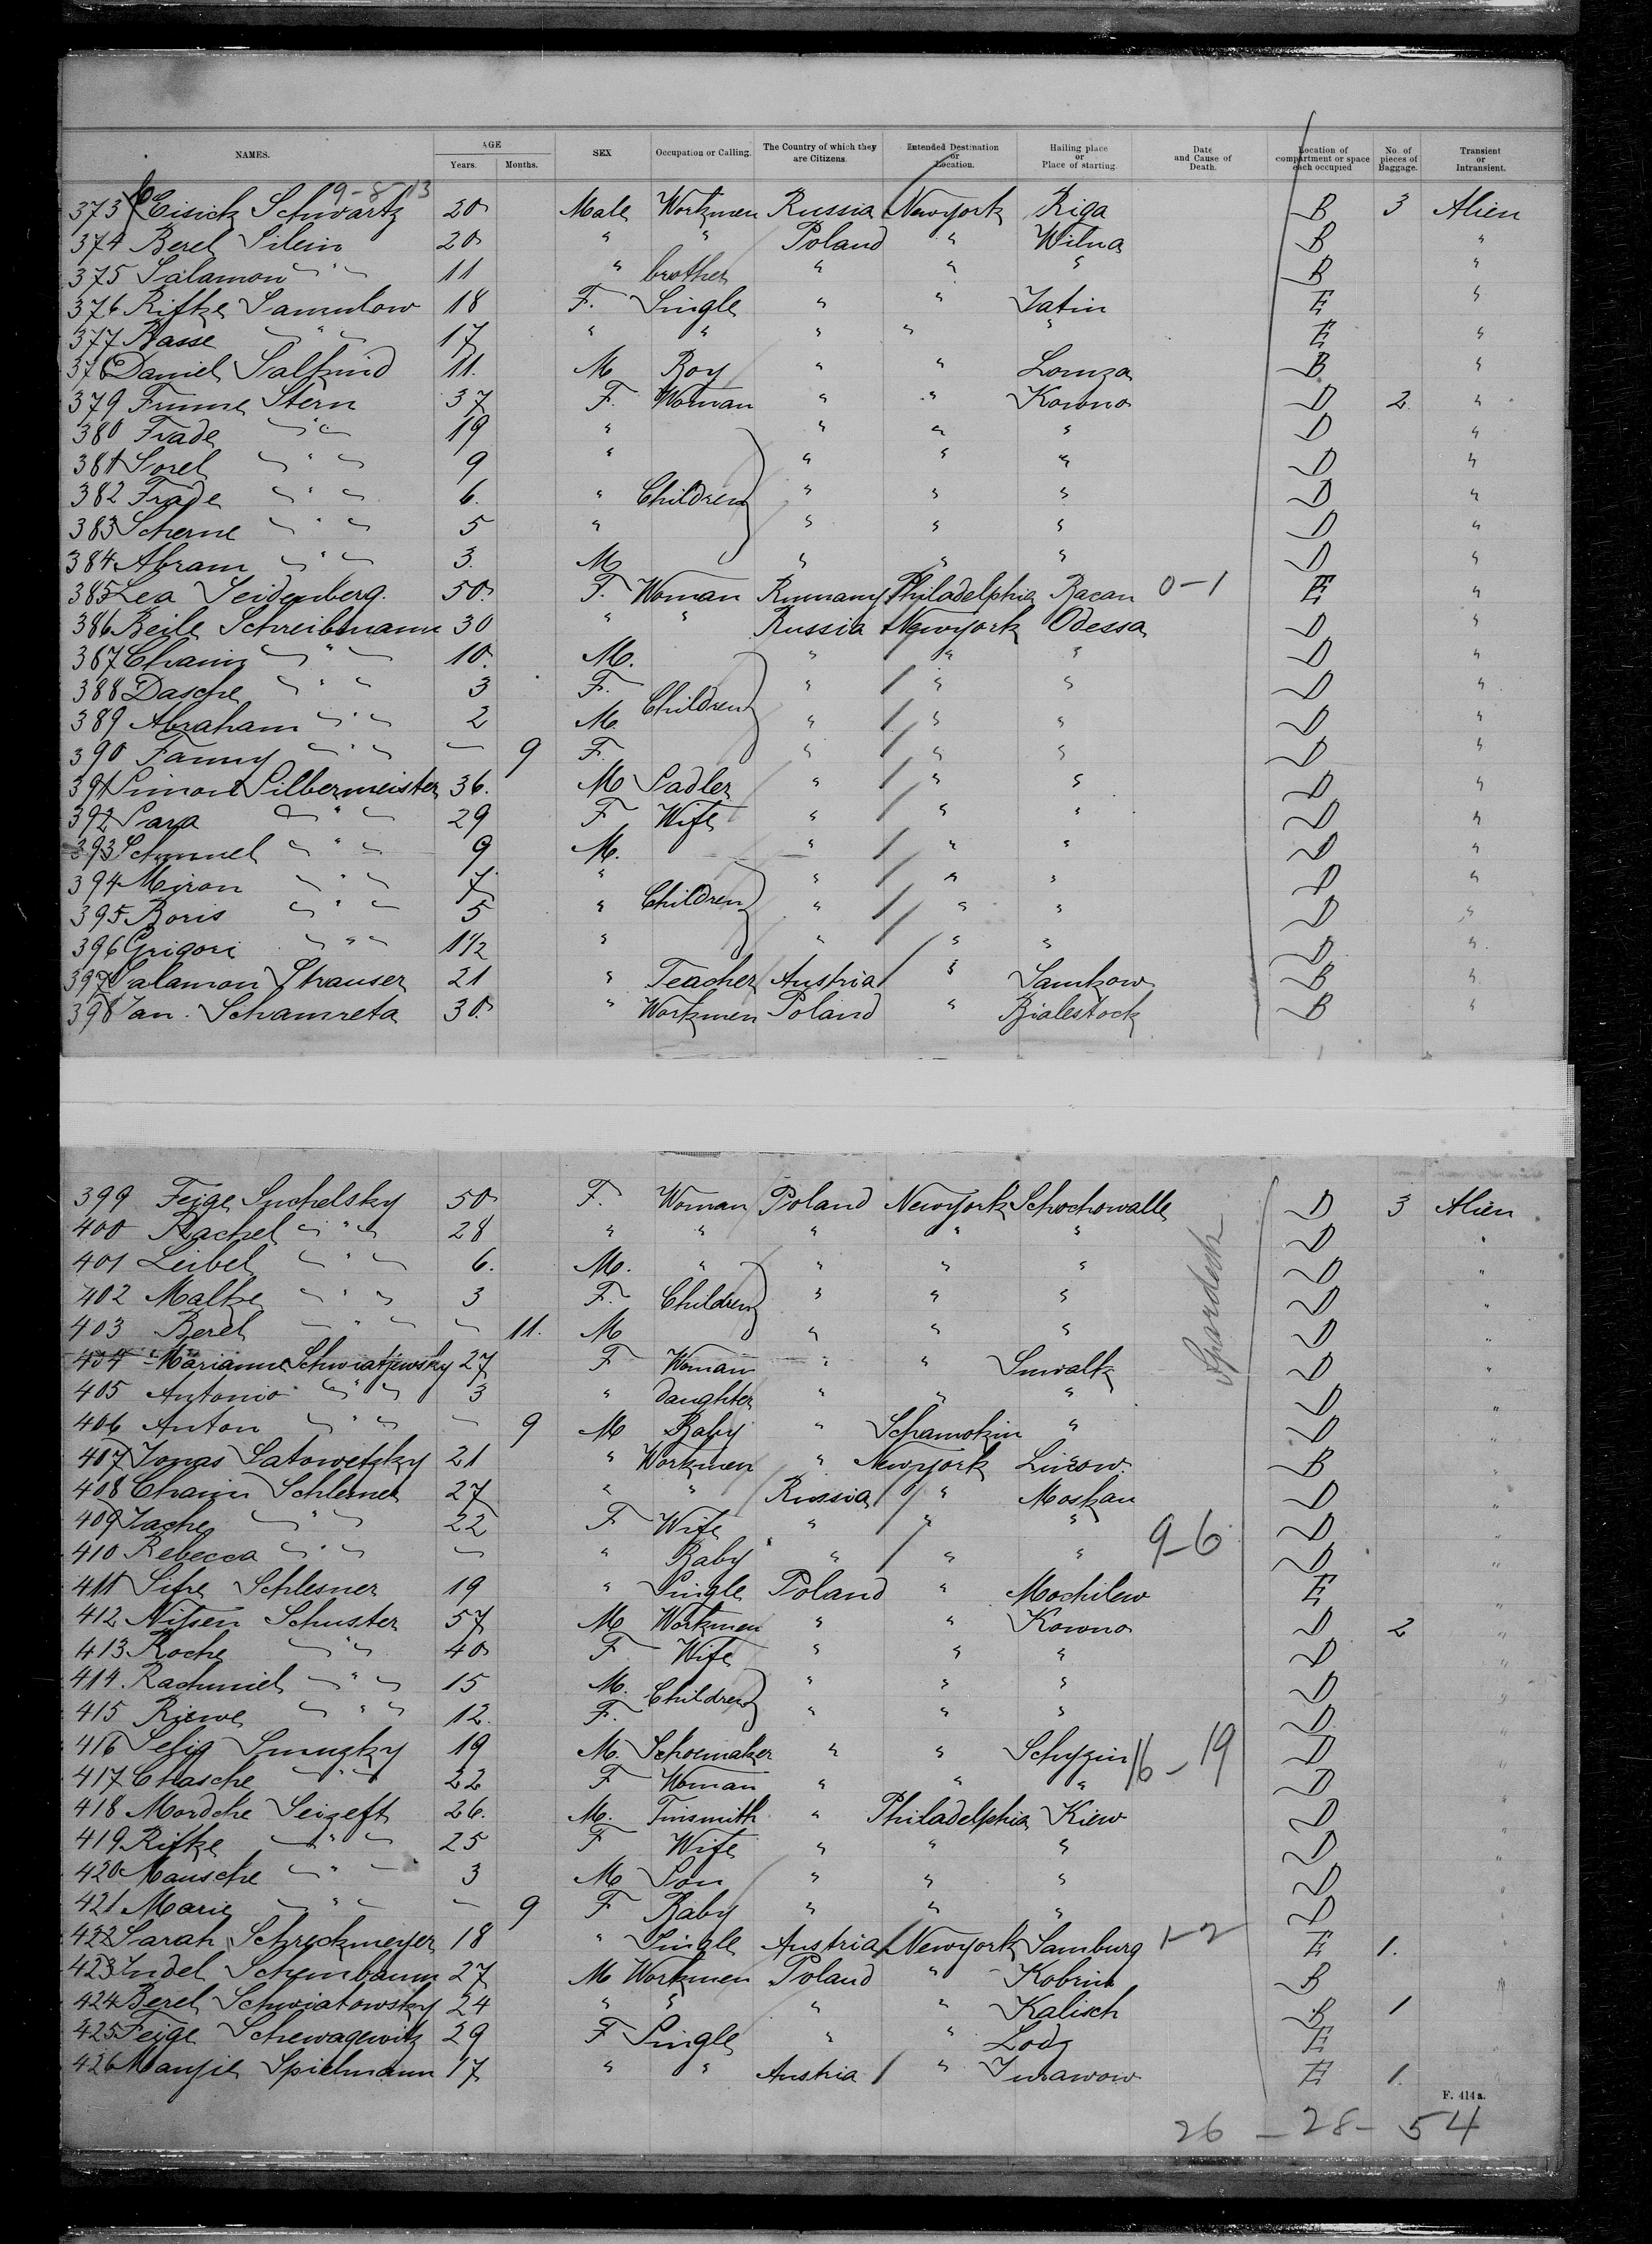 NAMES. AGE Years. Months. SEX Occupation or Calling. The Country of which they are Citizens. Intended Destination or Location. Hailing place or Place of starting. Date and Cause of Death. Location of compartment or space each occupied No. of pieces of Baggage. Transient or Intransient.
9-8 13
373 Eisick Schwartz 20 Male Workmen Russia Newyork Riga B 3 Alien
374 Berel Silein 20 " " Poland " Wilna B "
375 Salamon " 11 " brother " " " B "
376 Rifke Samulow 18 F. Single " " Jatin E "
377 Basse " 17 " " " " " E "
378 Daniel Salkind 11. M Boy " " Lomza B "
379 Frume Stern 37 F. Woman " " Kowno D 2 "
380 Frade " 19 " " " " D "
381 Sorel " 9 " " " " D "
382 Frade " 6. " Children " " " D "
383 Scherne " 5 " " " " D "
384 Abram " 3. M " " " D "
385 Lea Seidenberg. 50. F. Woman Rumany Philadelphia Bacau 0-1 E "
386 Beile Schreibmann 30 " " Russia Newyork Odessa D "
387 Chaim " 10. M. " " " D "
388 Dasche " 3 F. Children " " " D "
389 Abraham " 2 M. " " " D "
390 Fanny " — 9 F. " " " D "
391 Simon Silbermeister 36. M Sadler " " " D "
392 Sara " 29 F Wife " " " D "
393 Schmuel " 9 M. " " " D "
394 Miron " 7. " Children " " " D "
395 Boris " 5 " " " " D "
396 Grigori " 1 1/2 " " " " D "
397 Salamon Strauser 21 " Teacher Austria " Samkow B "
398 Jan. Schamreta 30. " Workmen Poland " Bialestock B "
399 Feige Suchelsky 50 F. Woman Poland Newyork Schochowalle D 3 Alien
400 Rachel " 28 " " " " " D "
401 Leibel " 6. M. " " " " D "
402 Malke " 3 F. Children " " " D "
403 Berel " — 11. M " " " D "
404 Marianne Schwiatjewsky 27 F Woman " " Suwalk D "
405 Antonio " 3 " daughter " " " D "
406 Anton " — 9 M Baby " Schamokin " D "
407 Jonas Satowetzky 21 " Workmen " Newyork Lixow. B "
408 Chaim Schlesner 27 " " Russia " Moskau D "
409 Zache " 22 F Wife " " " D "
9-6
410 Rebecca " — " Baby " " " D "
411 Sifre Schlesner 19 " Single Poland " Mochilew E "
412 Nissen Schuster 57 M Workmen " " Kowno D 2 "
413 Roche " 40 F Wife " " " D "
414. Rachmiel " 15 M. Children " " " D "
415 Riewe " 12. F. " " " D "
416 Selig Smuzky 19 M. Schoemaker " " Schyzin 16-19 D "
417 Chasche " 22 F Woman " " " D "
418 Mordche Seizeft 26. M. Tinsmith " Philadelphia Kiew D "
419 Rifke " 25 F Wife " " " D "
420 Mausche " 3 M Son " " " D "
421 Marie " — 9 F Baby " " " D "
422 Sarah Schreckmeyer 18 " Single Austria Newyork Samburg 1-2 E 1. "
423 Judel Scheinbaum 27 M Workmen Poland " Kobrin B "
424 Berel Schwiatowsky 24 " " " " Kalisch B 1 "
425 Feige Schewagewitz 29 F Single " " Lodz E "
426 Manjie Spielmann 17 " " Austria " Jurawow E 1. "
F. 414a.
26 - 28 - 54